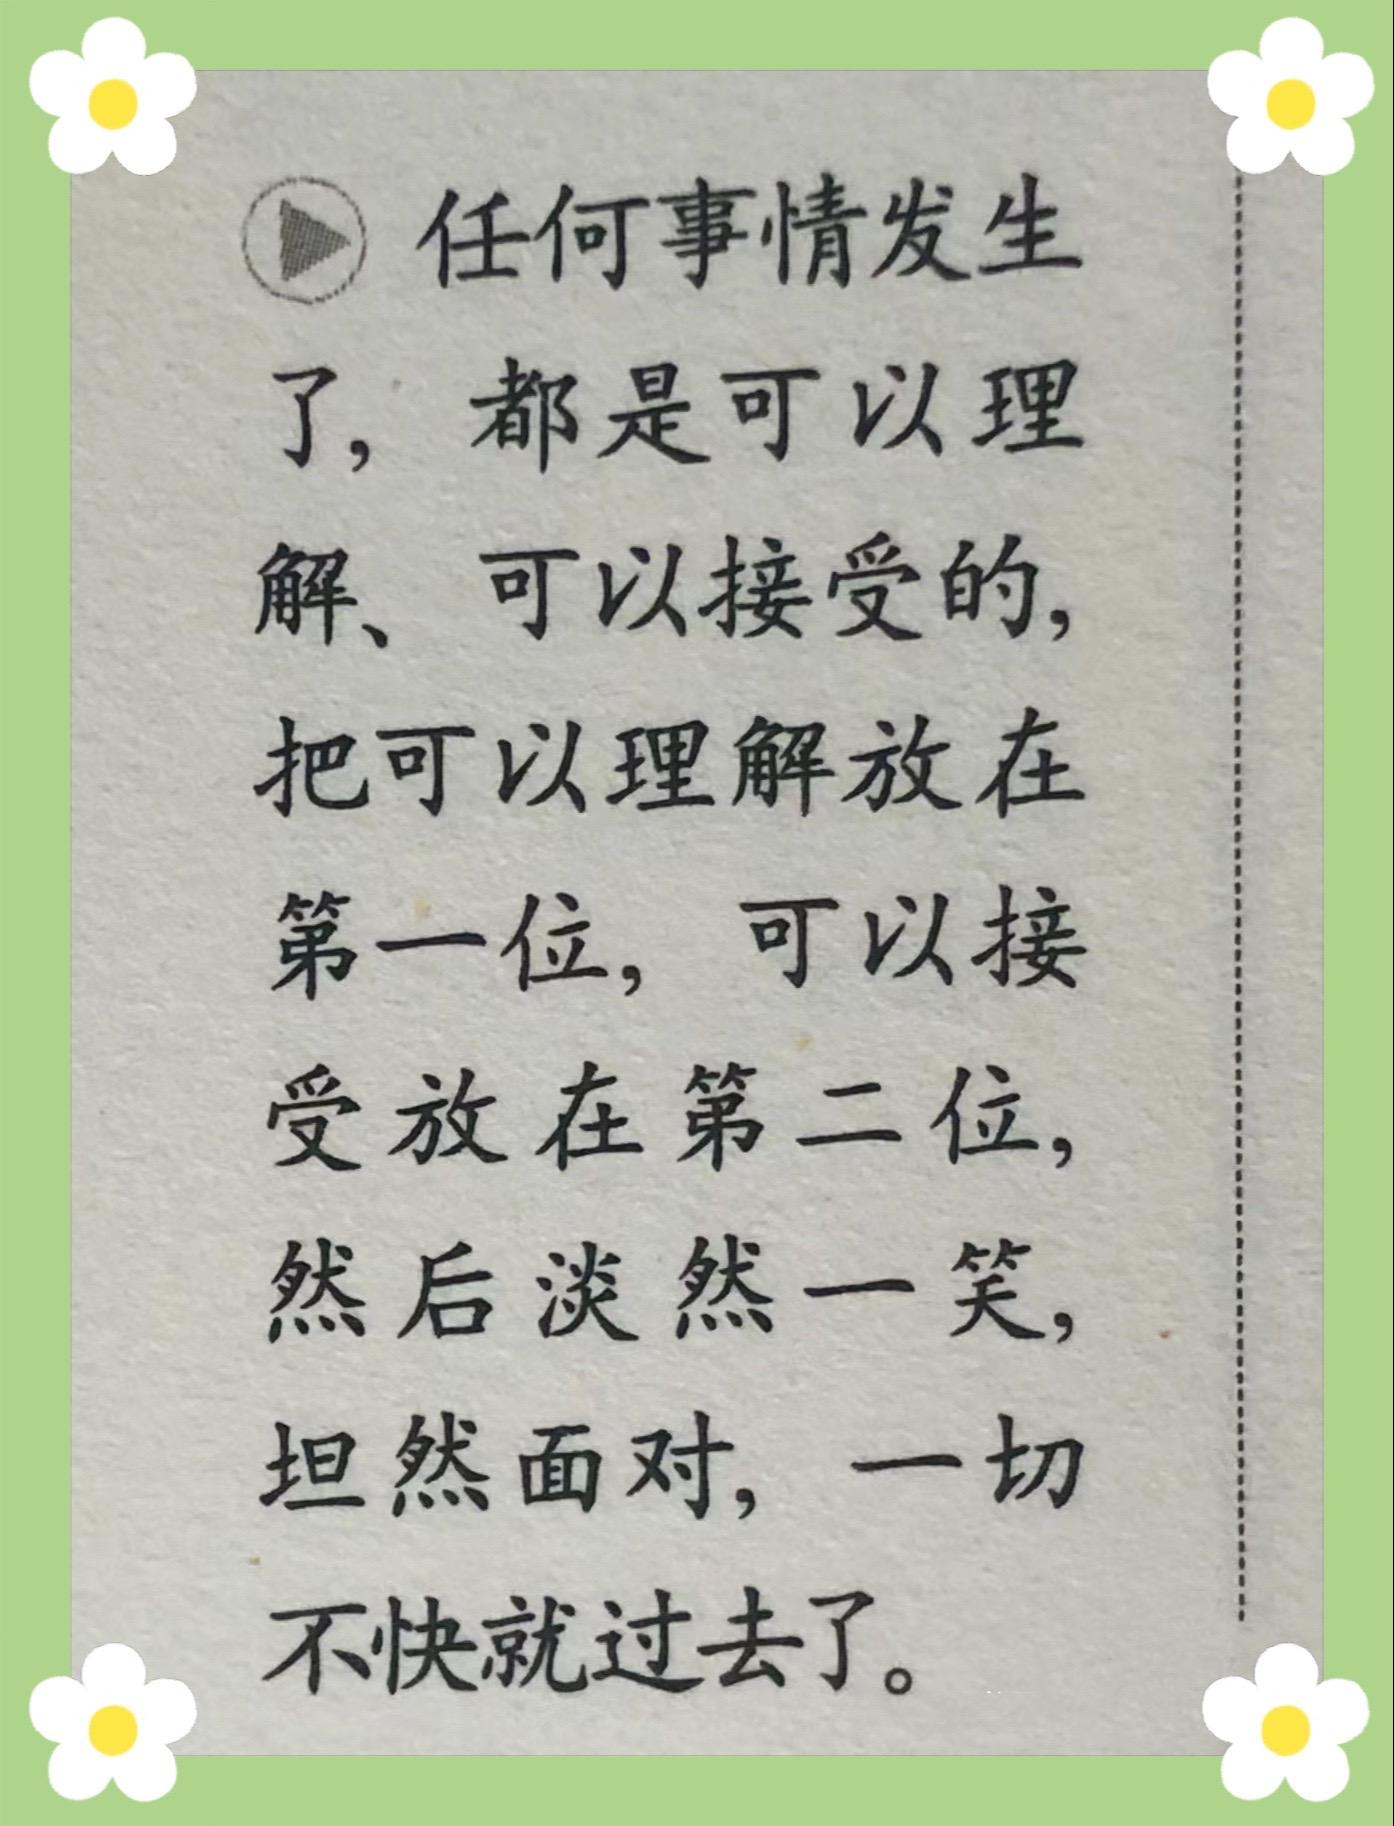 任何事情发生
了，都是可以理
解、可以接受的，
把可以理解放在
第一位，可以接
受放在第二位，
然后淡然一笑，
坦然面对，一切
不快就过去了。